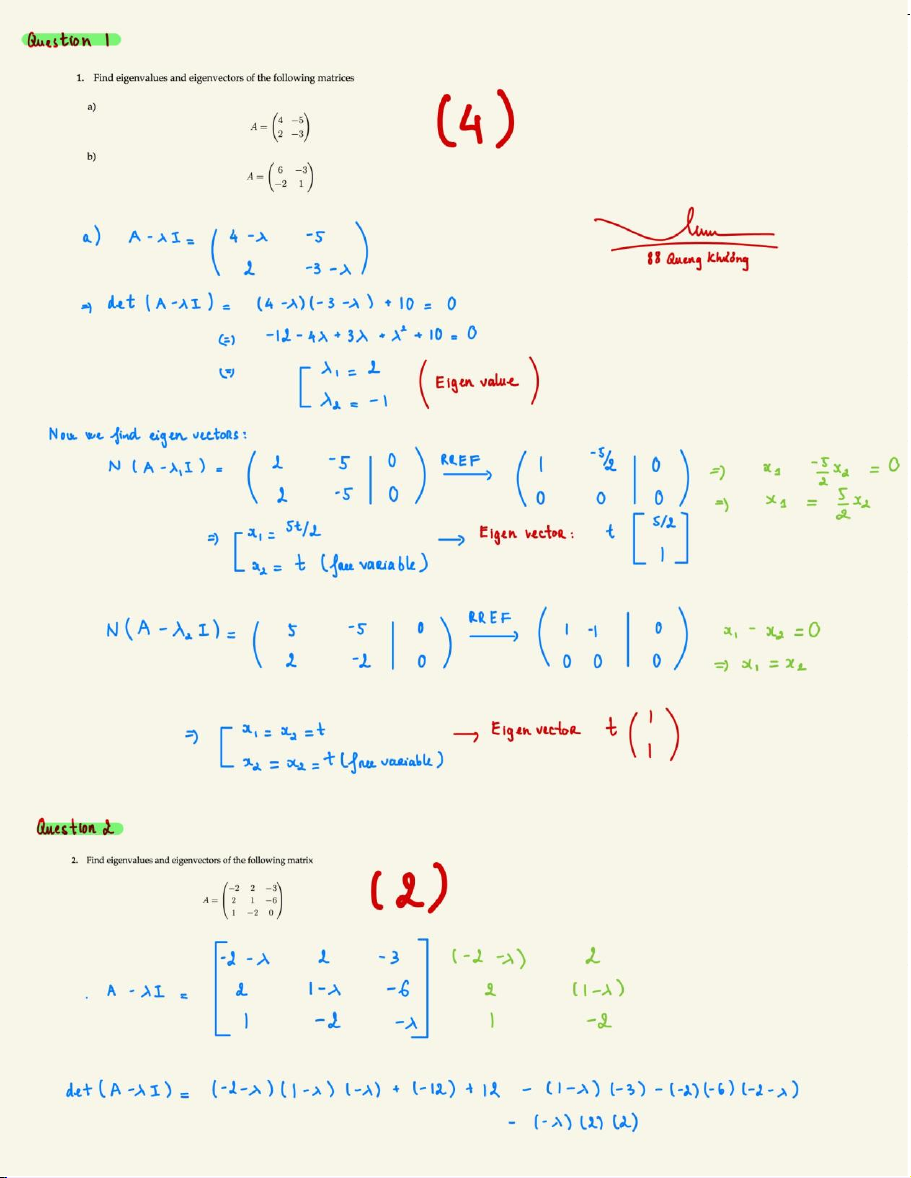 Question 1
1. Find eigenvalues and eigenvectors of the following matrices
(4)
a)
A = ( 4 -5
2 -3 )
b)
A = ( 6 -3
-2 1 )
88 Quang Khường
a) A - λI = ( 4 -λ -5
2 -3 -λ )
⇒ det (A - λI) = (4 -λ)(-3 -λ) + 10 = 0
(=) -12 - 4λ + 3λ + λ² + 10 = 0
(=) [ λ₁ = 2
λ₂ = -1
(Eigen value)
Now we find eigen vectors:
N (A - λ₁I) = ( 2 -5 | 0
2 -5 | 0 ) RREF → ( 1 -5/2 | 0
0 0 | 0 )
⇒) x₁ -5/2 x₂ = 0
⇒) x₁ = 5/2 x₂
⇒) [ x₁ = 5t/2
x₂ = t (free variable)
→ Eigen vector: t [ 5/2
1 ]
N(A - λ₂I) = ( 5 -5 | 0
2 -2 | 0 ) RREF → ( 1 -1 | 0
0 0 | 0 )
x₁ - x₂ = 0
⇒) x₁ = x₂
⇒) [ x₁ = x₂ = t
x₂ = x₂ = t (free variable)
→ Eigen vector t ( 1
1 )
Question 2
2. Find eigenvalues and eigenvectors of the following matrix
(2)
A = ( -2 2 -3
2 1 -6
1 -2 0 )
. A - λI = [ -2 -λ 2 -3 ] (-2 -λ) 2
[ 2 1-λ -6 ] 2 (1-λ)
[ 1 -2 -λ ] 1 -2
det (A - λI) = (-2-λ)(1-λ)(-λ) + (-12) + 12 - (1-λ)(-3) - (-2)(-6)(-2-λ)
- (-λ)(2)(2)